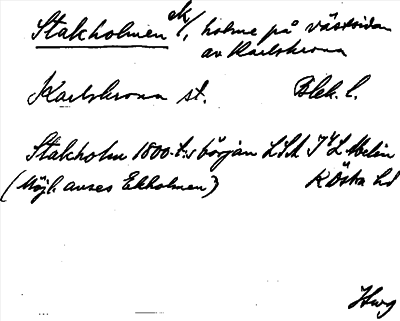 Stakholmen ek/, holme på västsidan
av Karlskrona
Karlskrona st. Blek. l.
Stakholm 1800-t:s början LSA J4 L Melin
(Möjl. anses Ekholmen) K Östra hd
Hwg